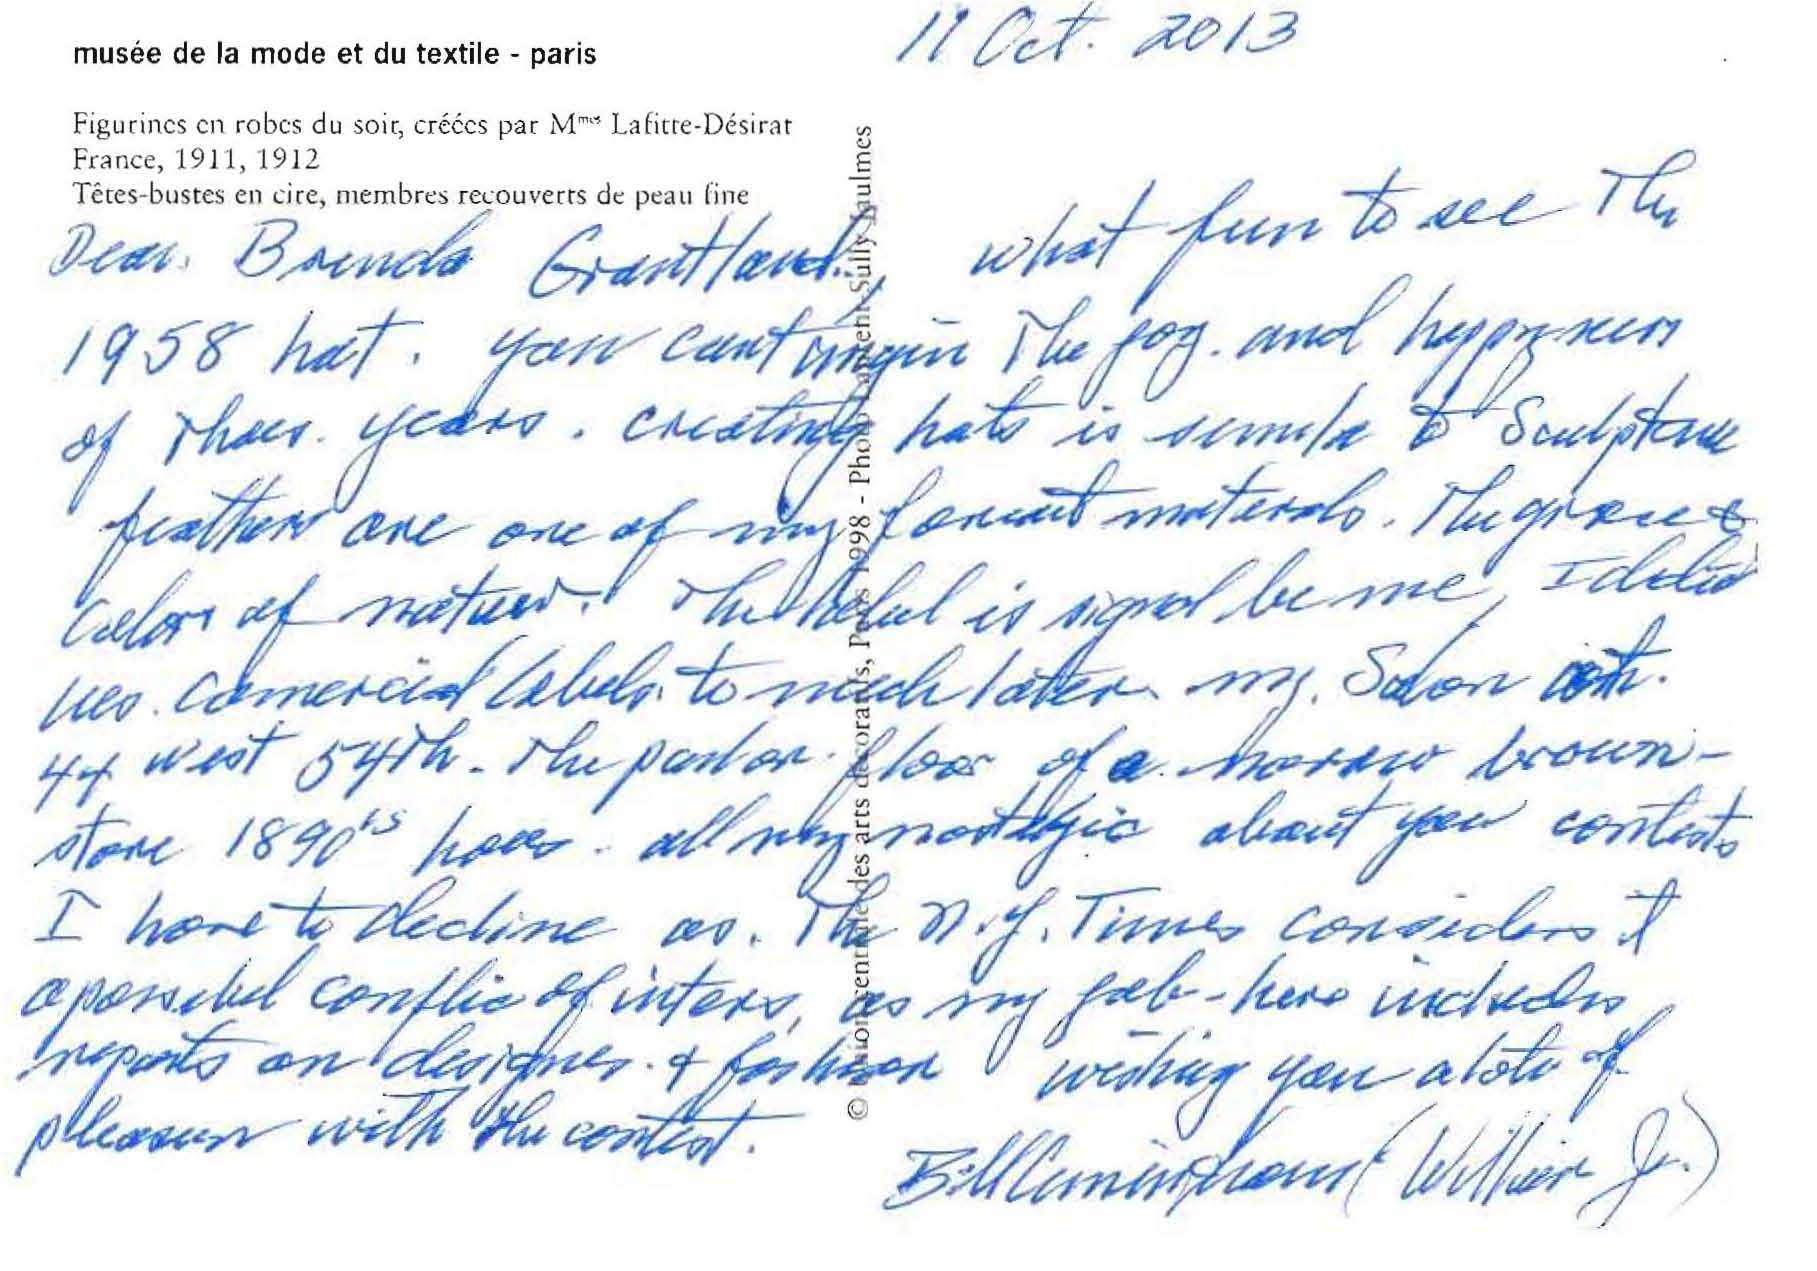 11 Oct. 2013
musée de la mode et du textile - paris
Figurines en robes du soir, créées par Mmes Lafitte-Désirat
France, 1911, 1912
Têtes-bustes en cire, membres recouverts de peau fine
Dear. Brenda Grantland., what fun to see The
1958 hat. you cant imagin The joy. and happyness
of Thoes. years. creating hats is simula to Sculpture
feathers are one of my favorit materials. The grace &
Colors of nature. The label is signed be me, I did
ues. Comercial labels. to much later. my. Salon
44 west 54Th. The parlor floor of a. narrow brown-
stone 1890's hoes. all my nostalgic about your contests
I have to decline as. The N.Y. Times considers it
a possibul conflic of inters, as my job-here includes
reports on designes. & fashion wishing you a lots of
pleasur with the contest.
Bill Cunningham (William Jr.)
© Union centrale des arts décoratifs, Paris 1998 - Photo Laurent-Sully Jaulmes